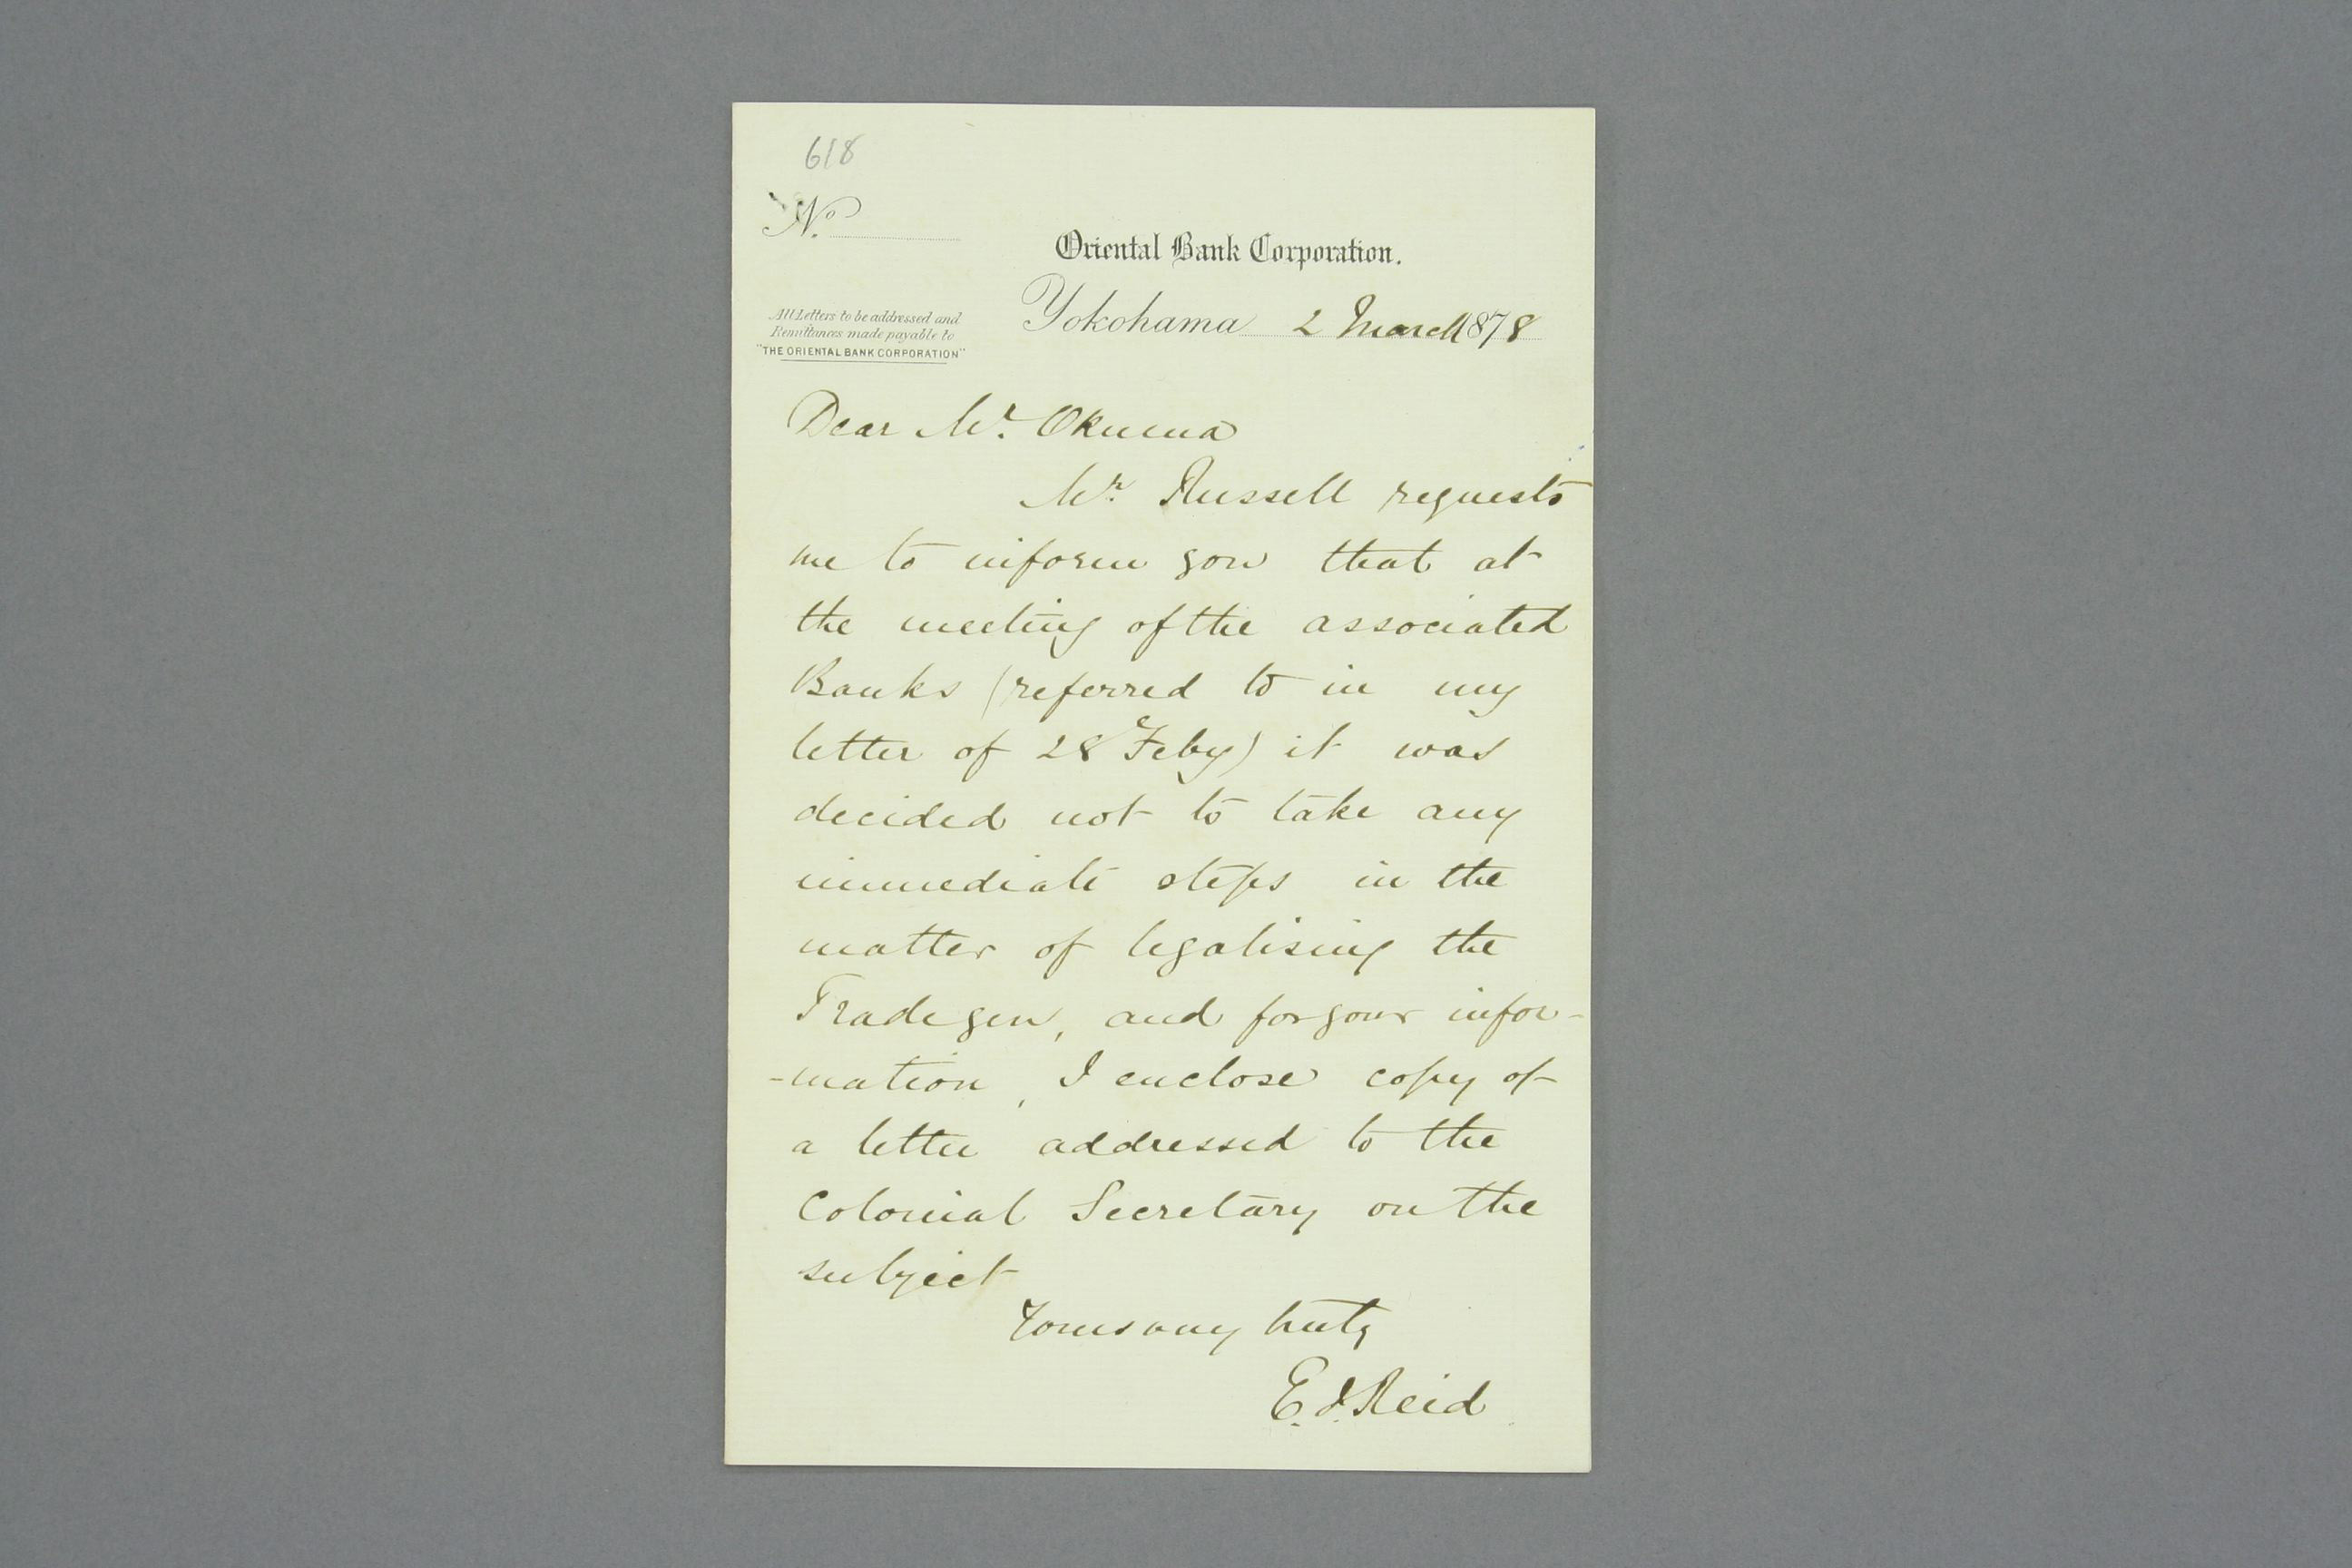 618
No.
Oriental Bank Corporation.
Yokohama 2 March 1878
All Letters to be addressed and
Remittances made payable to
"THE ORIENTAL BANK CORPORATION"
Dear Mr. Okuma
Mr. Russell requests
me to inform you that at
the meeting of the associated
Banks (referred to in my
letter of 28 Feby) it was
decided not to take any
immediate steps in the
matter of legalising the
Trade yen, and for your infor-
-mation, I enclose copy of
a letter addressed to the
Colonial Secretary on the
subject
Yours very truly
E. J. Reid